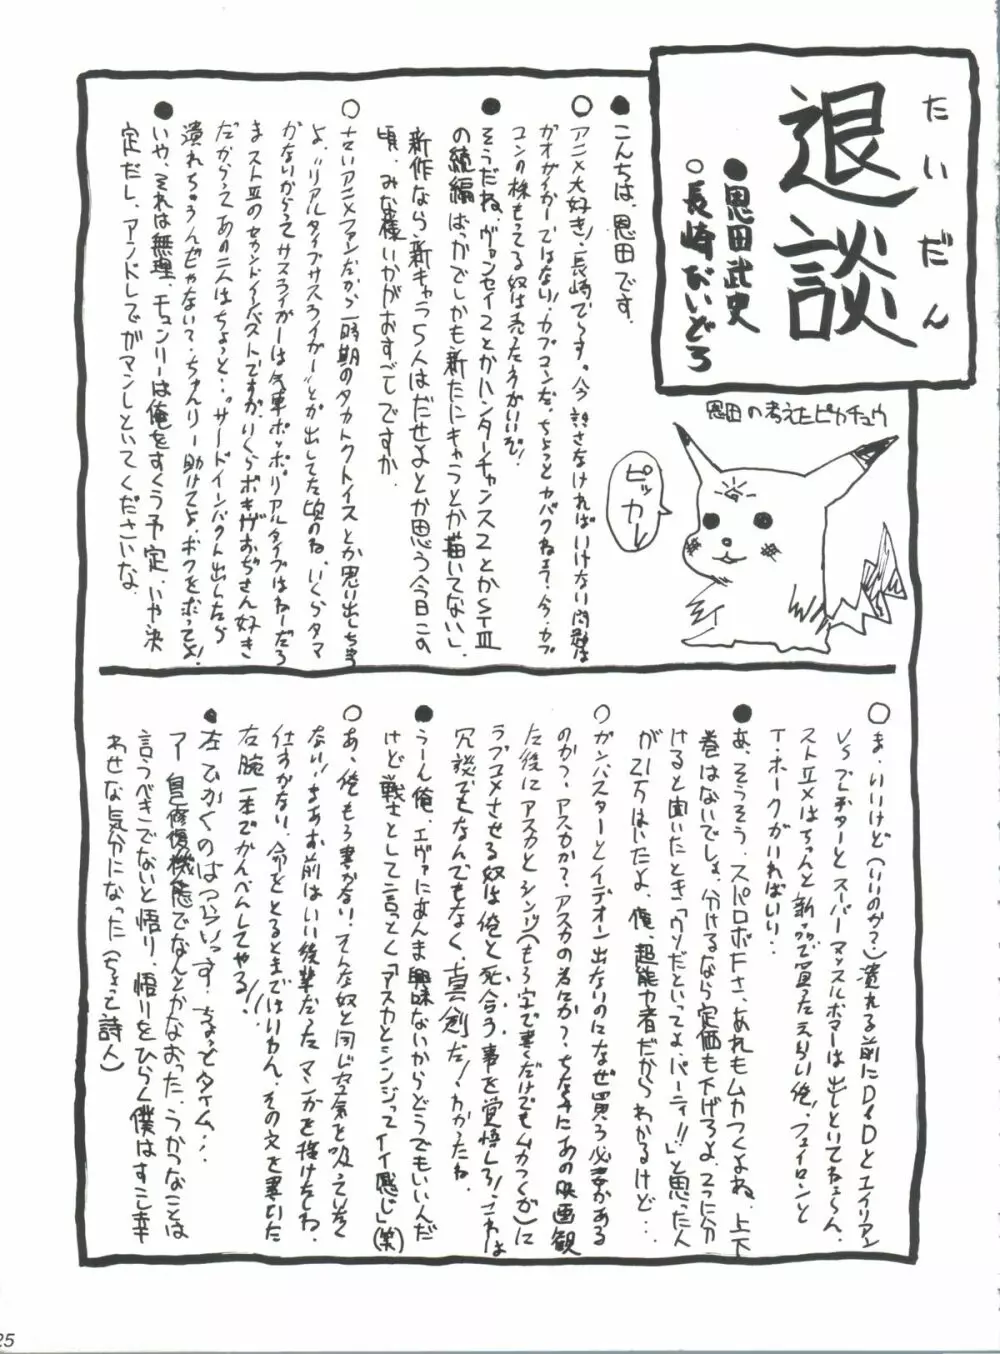 たいだん
退談
●恩田武史
○長崎ないどろ
恩田の考えたピカチュウ
ピッカレ
●こんちは、恩田です。
○アニメ大好き!長崎でーす。今話さなければいけない問題は
ガオガイガーではない!カプコンだ。ちょっとヤバクねェ?今、カプ
コンの株もってる奴は売ったうがいいぞ!
●そうだね、ヴァンセイ2とかハンターチャンス2とかSTⅢ
の続編ばっかでしかも新たにキャラとか描いてない、
新作なら新キャラ5人はだせよとか思う今日この
頃、みな様いかがおすごしですか。
よ、"リアルタイプサスライガー"とか出してた頃のね、いくらタマ
かないからってサスライガーは汽車ポッポ。リアルタイプはねーだろ
まストⅢのセカンドインパクストですが、いくらボキがおぢさん好き
だからってあの二人はちょっと…。サードインパクト出したら
潰れちゃうんぢゃないて?ちゅんリー助けてよ、ボクをボってよ!
●いや、それは無理、チュンリーは俺をすくう予定、いや決
定だし、アンドレでガマンしといてくださいな。
○ま、いいけど(いいのか?)潰れる前にD&Dとエイリアン
VSプレデターとスーパーマッスルボマーは出しといてねぇーん、
ストⅢ×はちゃんと新品で買ったえらい俺!フェイロンと
T・ホークがいればいい!
●あ、そうそう、スパロボFさ、あれもムカつくよね、上下
巻はないでしょ、分けるなら定価も下げろよ、2つに分
けると聞いたとき「ウソだといってよ、バーディ!!」と思った人
が21万はいたよ、俺、超能力者だからわかるけど…
○ガンバスターとイデオン出ないのになぜ買う必要がある
のか?アスカか?アスカの為にか?ちなみにあの映画観
た後にアスカとシンジ(もう字で書くだけでもムカつくが)に
ラブコメさせる奴は俺と死合う事を覚悟しろ!これは
冗談でもなんでもなく、真剣だ!わかったね。
●うーん俺、エヴァにあんま興味ないからどうでもいいんだ
けど戦士として言っとく「アスカとシンジってイイ感じ」(笑)
○あ、俺もう書かない、そんな奴と同じ空気を吸っていたく
ない!まあお前はいい後輩だったマンガを描けたしね
仕方がない、命をとるまではいかん、その文を書いた
右腕一本でかんべんしてやる!!
●左でかくのはつらいっす、ちょっとタイム…
アー自己修復機能でなんとかなおった、うかつなことは
言うべきでないと悟り、悟りをひらく僕はすこし幸
わせな気分になった(ちょっと詩人)
25